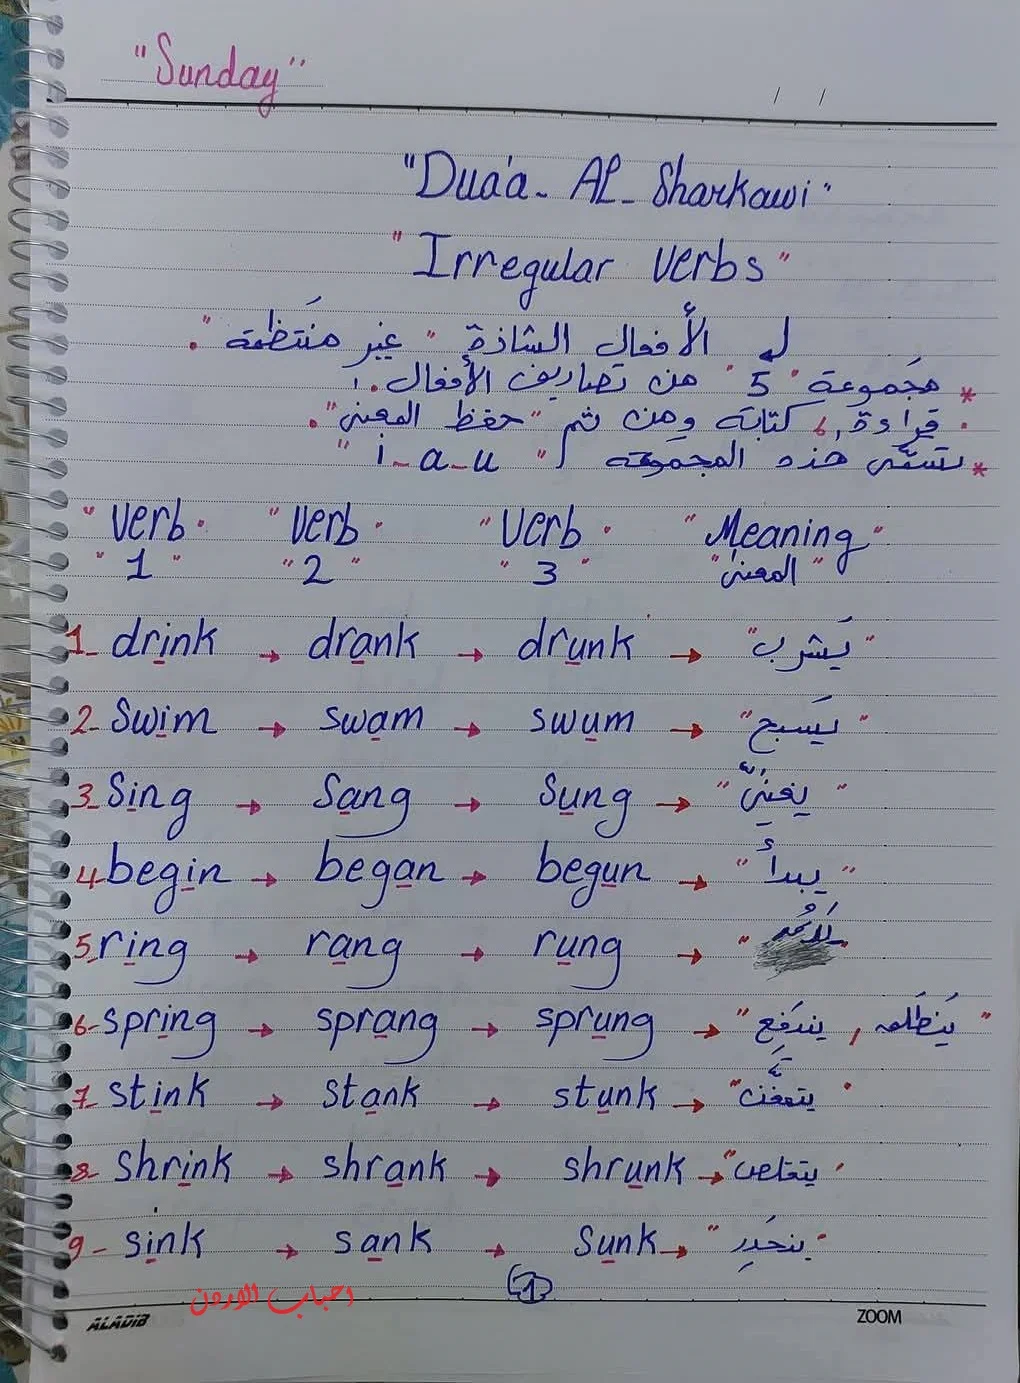 "Sunday"
/ /
"Dua'a - AL - Sharkawi"
"Irregular verbs"
الأفعال الشاذة "غير منتظمة".
* مجموعة "5" من تصاريف الأفعال.
. قراءة, كتابة ومن ثم "حفظ المعنى".
* تسمَّى هذه المجموعة "i-a-u"
"Verb." "Verb." "Verb." "Meaning"
"1" "2" "3" "المعنى"
1- drink → drank → drunk → "يَشرب"
2- Swim → swam → swum → "يَسبح"
3- Sing → Sang → Sung → "يغنيّ"
4- begin → began → begun → "يبدأ"
5- ring → rang → rung → "
6- spring → sprang → sprung → "يندَفِع, يَنطَلق"
7- stink → stank → stunk → "يتعفَّن"
8- shrink → shrank → shrunk → "يتقلص"
9- sink → sank → Sunk → "ينحَدِر"
1
احباب الاردن
ALADIB ZOOM